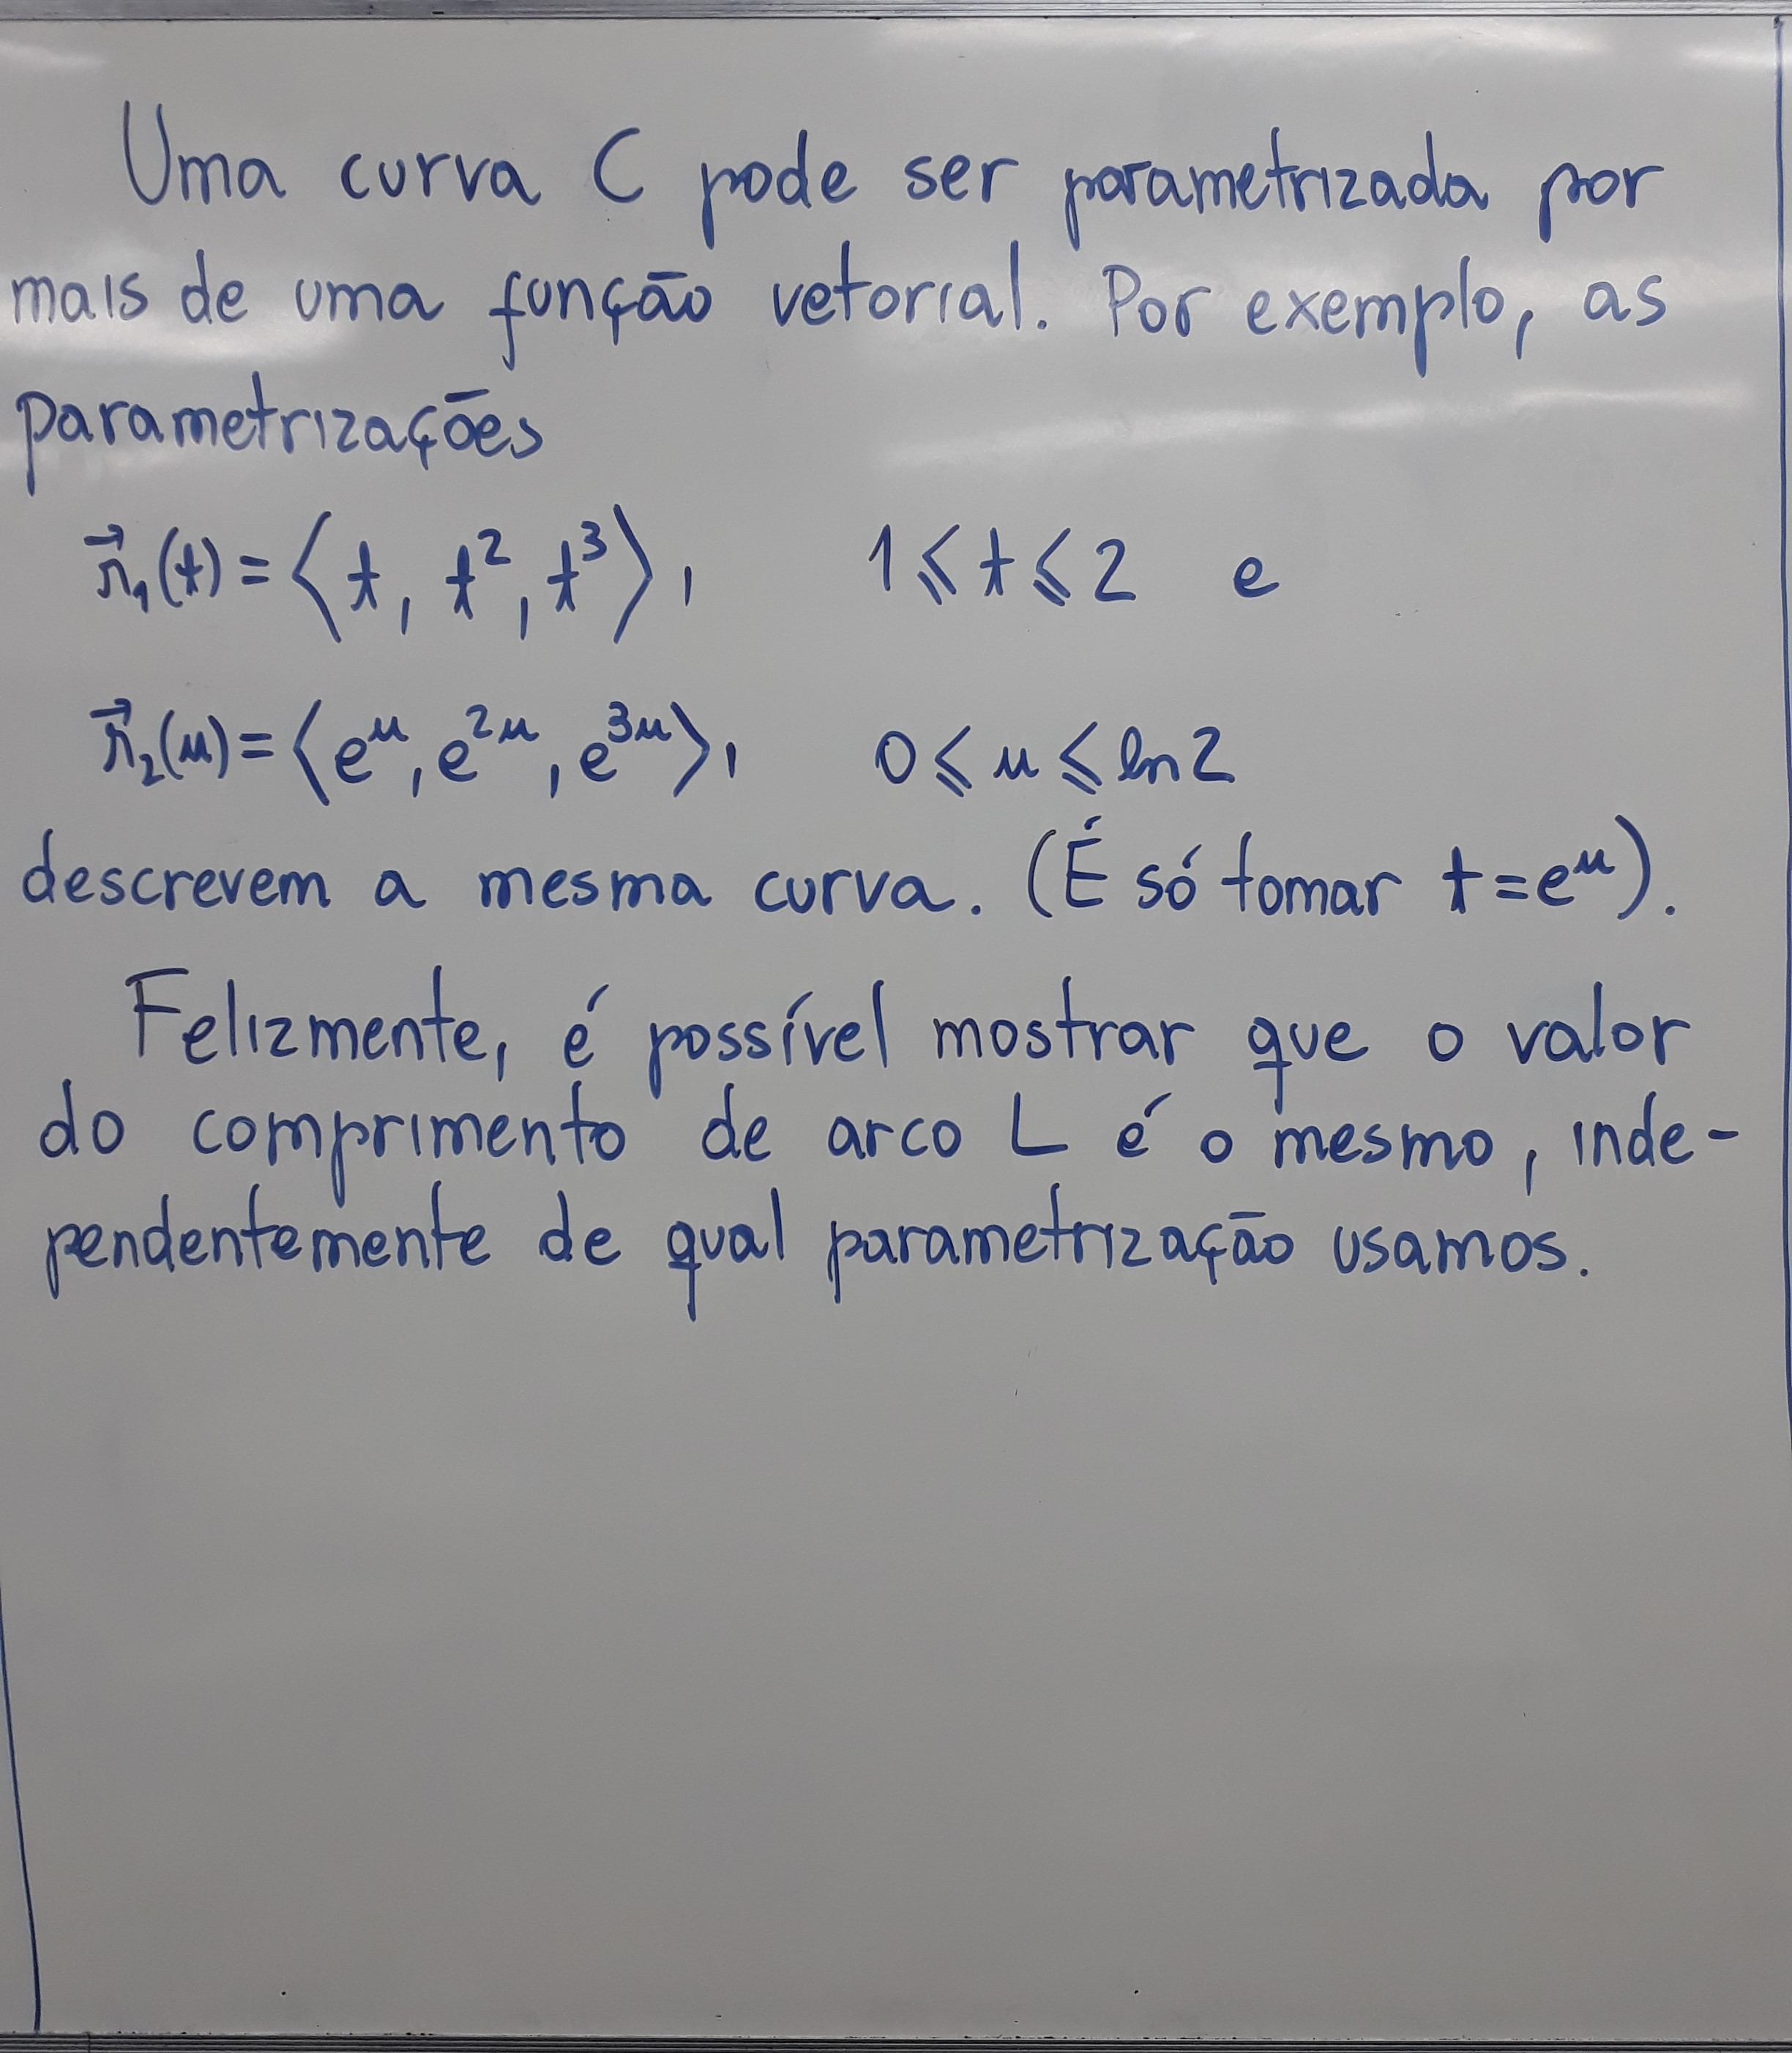 Uma curva C pode ser parametrizada por
mais de uma função vetorial. Por exemplo, as
parametrizações
r⃗₁(t) = ⟨t, t², t³⟩, 1 ⩽ t ⩽ 2 e
r⃗₂(u) = ⟨eᵘ, e²ᵘ, e³ᵘ⟩, 0 ⩽ u ⩽ ln 2
descrevem a mesma curva. (É só tomar t = eᵘ).
Felizmente, é possível mostrar que o valor
do comprimento de arco L é o mesmo, inde-
pendentemente de qual parametrização usamos.